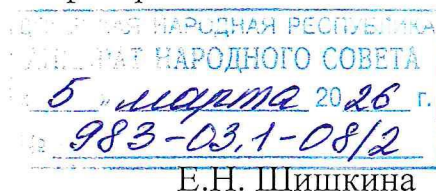 НАРОДНАЯ РЕСПУБЛИКА
НАРОДНОГО СОВЕТА
5 " марта 2026 г.
983-03.1-08/2
Е.Н. Шишкина